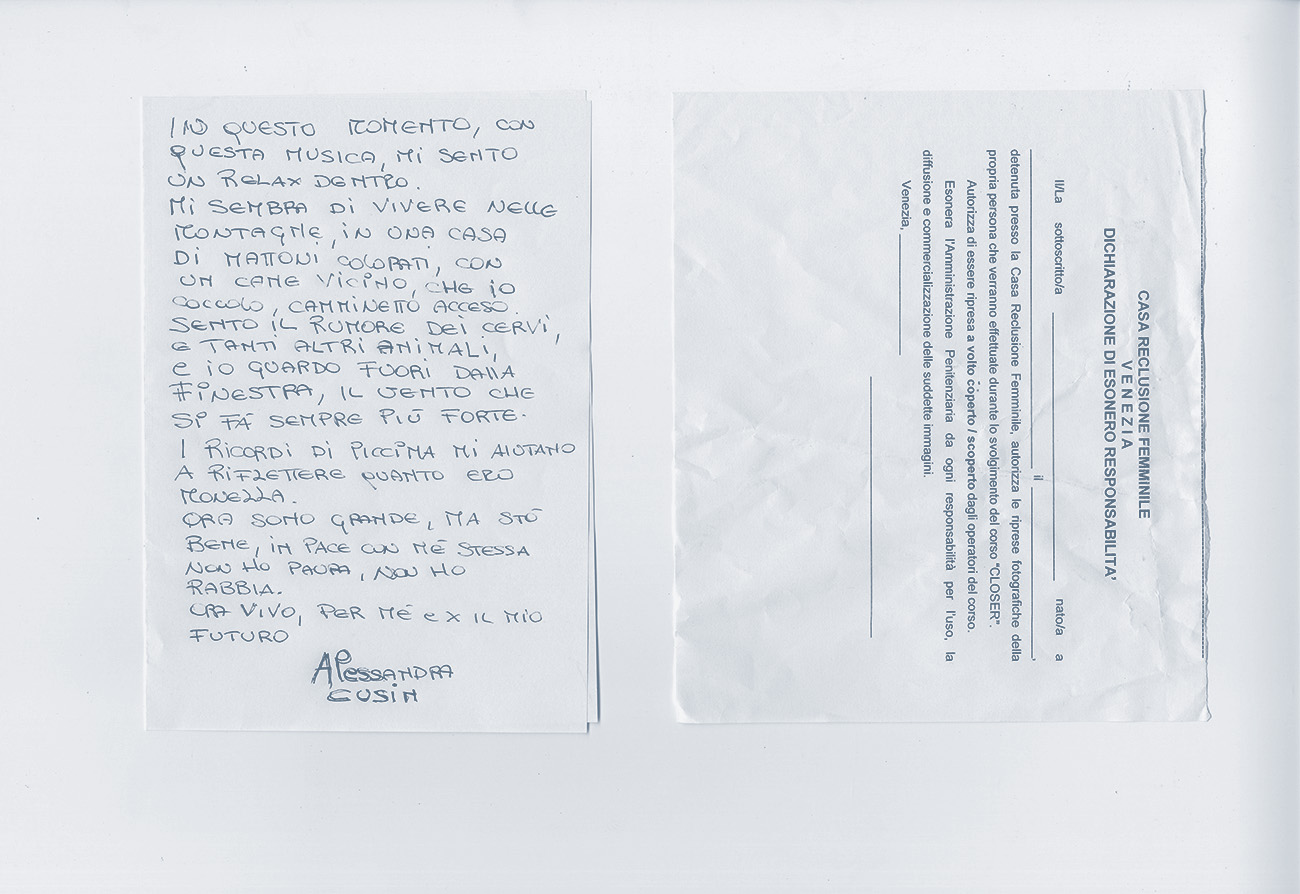 IN QUESTO MOMENTO, CON
QUESTA MUSICA, MI SENTO
UN RELAX DENTRO.
MI SEMBRA DI VIVERE NELLE
MONTAGNE, IN UNA CASA
DI MATTONI COLORATI, CON
UN CANE VICINO, CHE IO
COCCOLO, CAMMINETTO ACCESO.
SENTO IL RUMORE DEI CERVI,
E TANTI ALTRI ANIMALI,
E IO GUARDO FUORI DALLA
FINESTRA, IL VENTO CHE
SI FÁ SEMPRE PIÙ FORTE.
I RICORDI DI PICCINA MI AIUTANO
A RIFLETTERE QUANTO ERO
MONELLA.
ORA SONO GRANDE, MA STÒ
BENE, IN PACE CON MÉ STESSA
NON HO PAURA, NON HO
RABBIA.
ORA VIVO, PER MÉ E X IL MIO
FUTURO
ALESSANDRA
CUSIN
CASA RECLUSIONE FEMMINILE
VENEZIA
DICHIARAZIONE DI ESONERO RESPONSABILITA'
Il/La sottoscritto/a ____________________ nato/a a
____________________ il ____________________,
detenuta presso la Casa Reclusione Femminile, autorizza le riprese fotografiche della
propria persona che verranno effettuate durante lo svolgimento del corso "CLOSER".
Autorizza di essere ripresa a volto coperto / scoperto dagli operatori del corso.
Esonera l'Amministrazione Penitenziaria da ogni responsabilità per l'uso, la
diffusione e commercializzazione delle suddette immagini.
Venezia, ____________________